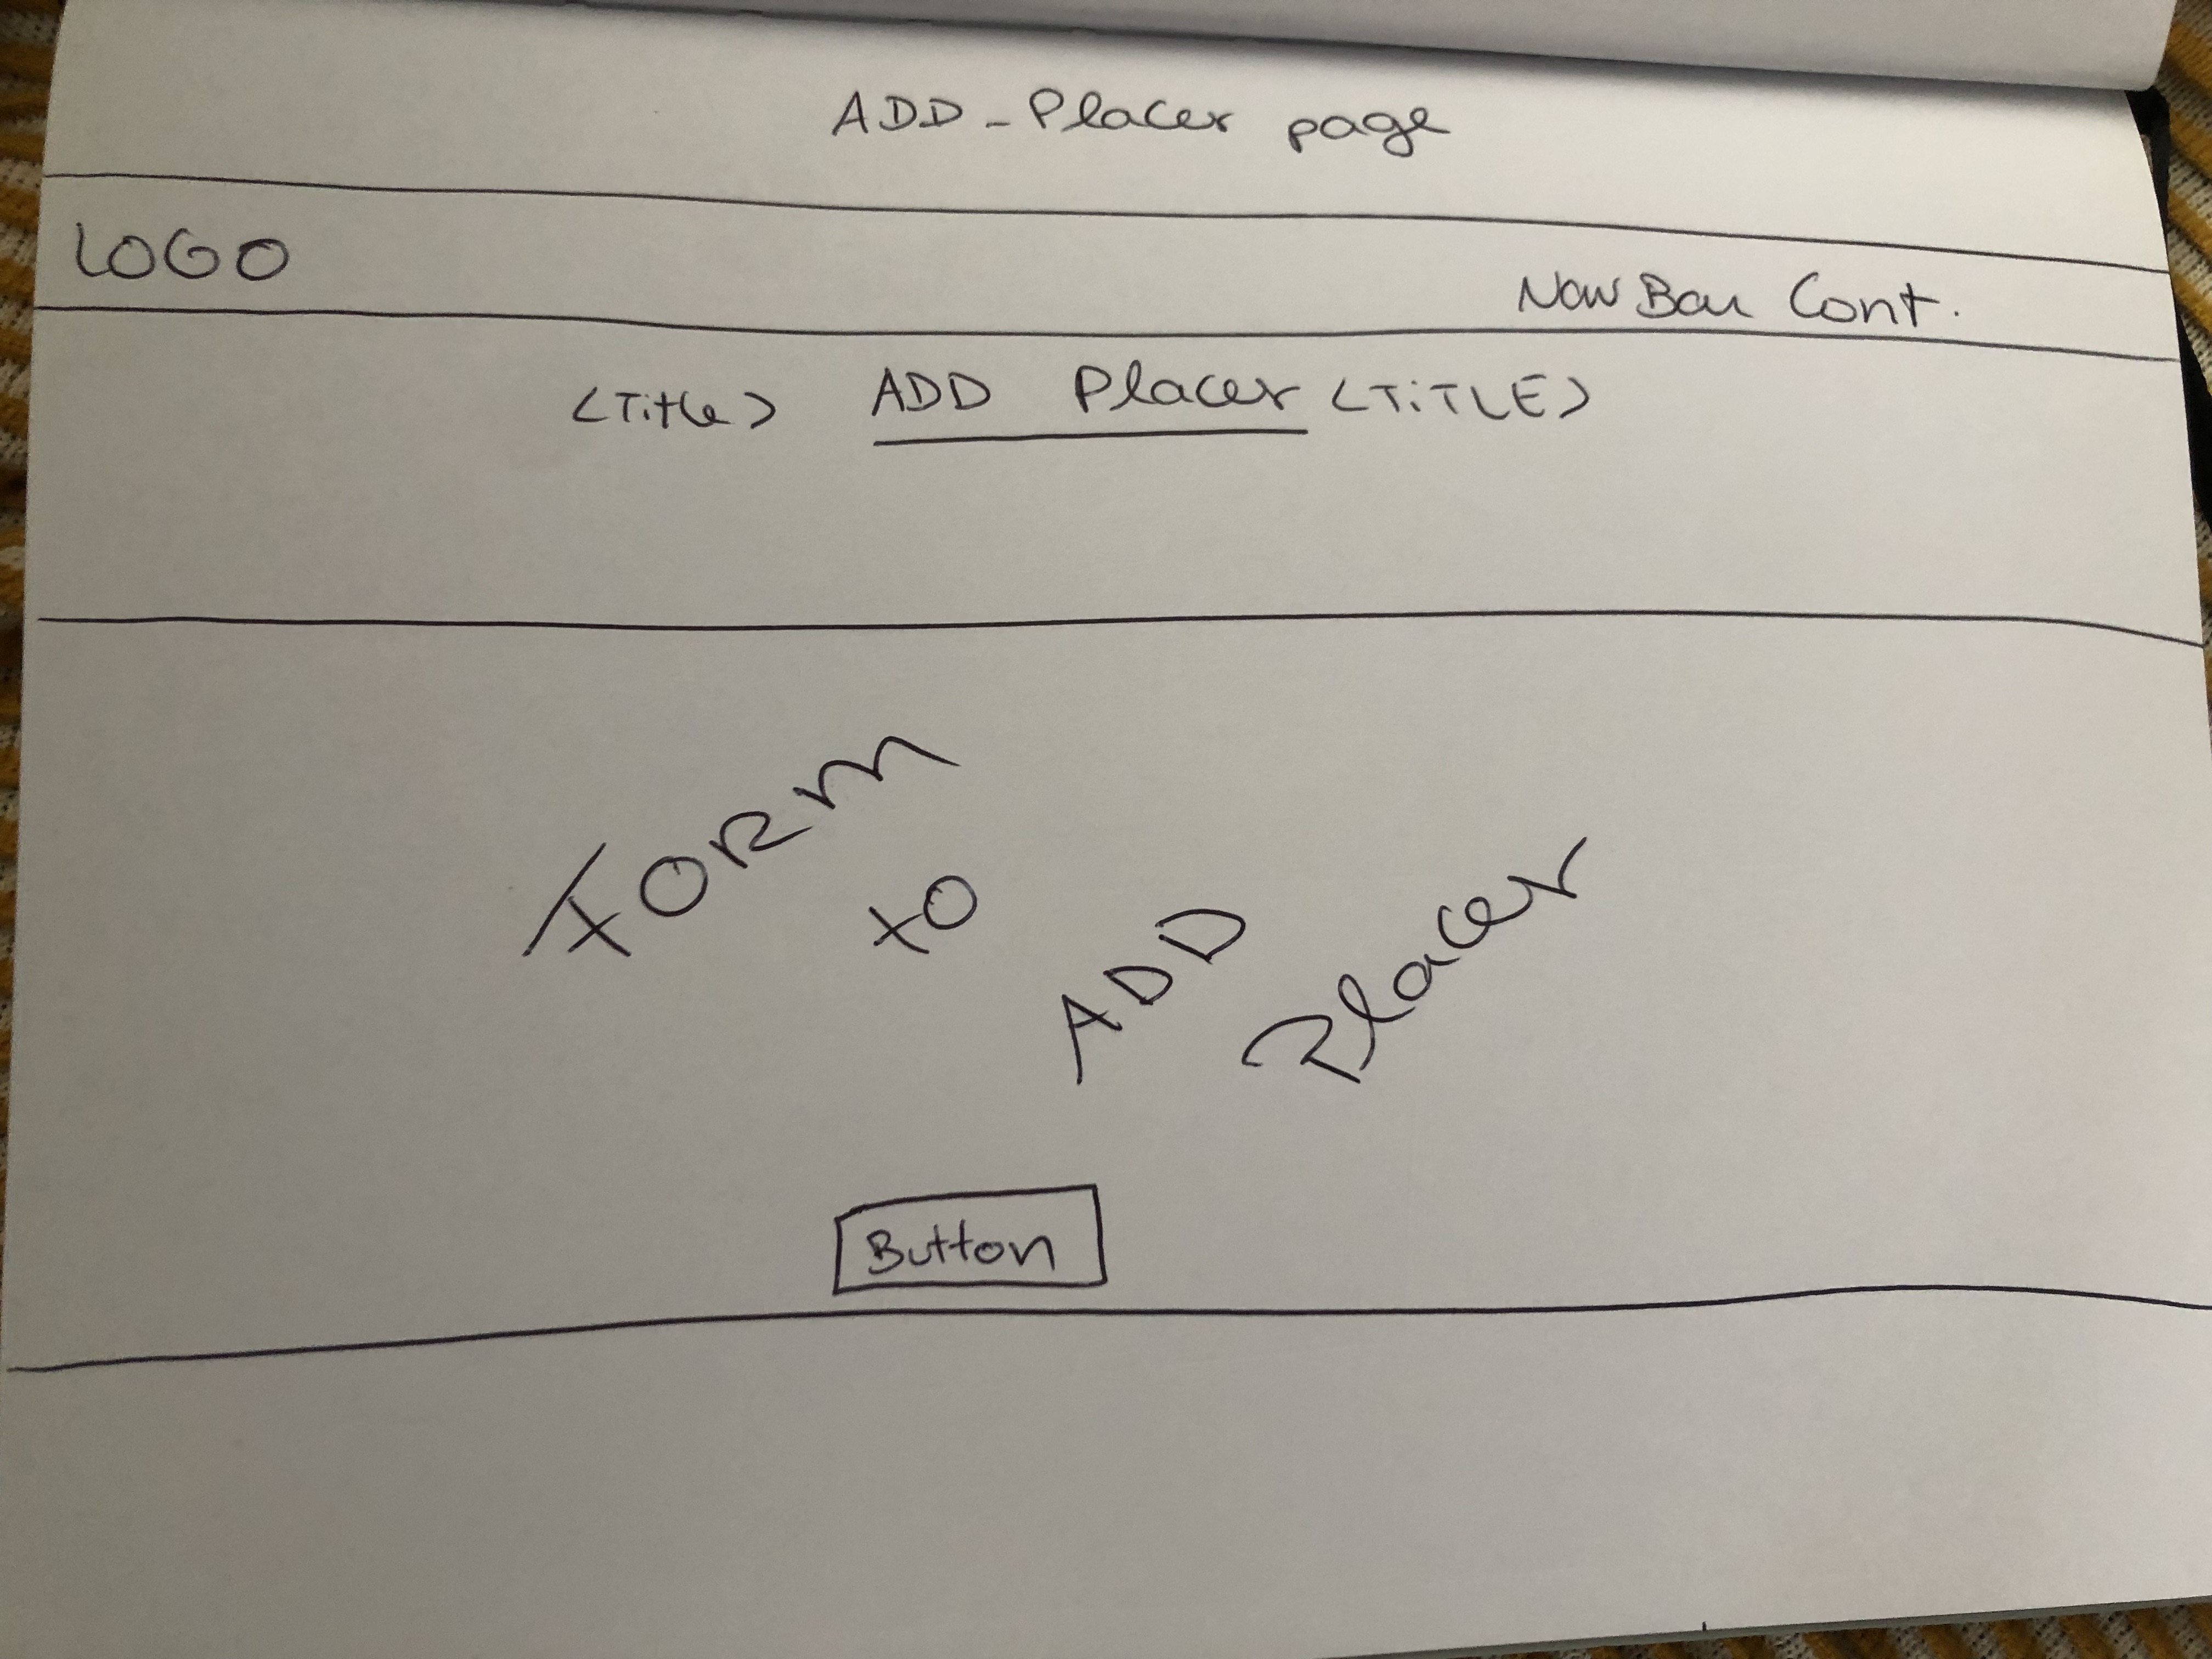 ADD - Placer page
LOGO
NavBar Cont.
<Title> ADD Placer <TITLE>
FORM
to
ADD
Placer
Button